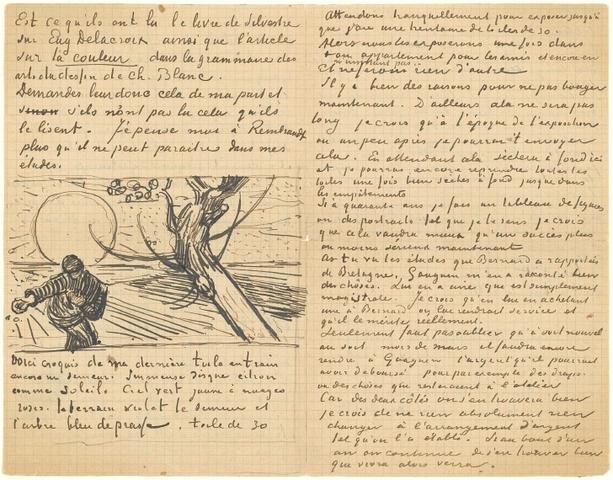 Est ce qu'ils ont lu le livre de Silvestre
sur Eug Delacroix ainsi que l'article
sur la couleur dans la grammaire des
arts du dessin de Ch. Blanc.
Demandez leur donc cela de ma part et
sinon s'ils n'ont pas lu cela qu'ils
le lisent. Je pense moi à Rembrandt
plus qu'il ne peut paraitre dans mes
études.
Voici croquis de ma dernière toile en train
encore un semeur. Immense disque citron
comme soleil. Ciel vert jaune à nuages
roses. le terrain violet le semeur et
l'arbre bleu de prusse. toile de 30
Attendons tranquillement pour exposer jusqu'à
que j'aie une trentaine de toiles de 30.
Alors nous les exposerons une fois dans
ton appartement pour les amis et encore en
n'imposant pas.
Et ne ferons rien d'autre
Il y a bien des raisons pour ne pas bouger
maintenant. D'ailleurs cela ne sera pas
long je crois qu'à l'époque de l'exposition
ou un peu après je pourrai t'envoyer
cela. En attendant cela sèchera à fond ici
et je pourrai encore reprendre toutes les
toiles une fois bien sèches à fond jusque dans
les empâtements
Si à quarante ans je fais un tableau de figures
ou des portraits tel que je le sens je crois
que cela vaudra mieux qu'un succès plus
ou moins sérieux maintenant
As tu vu les études que Bernard a rapportées
de Bretagne, Gauguin m'en a raconté bien
des choses. Lui en a une qui est simplement
magistrale. Je crois qu'en lui en achetant
une à Bernard on lui rendrait service et
qu'il le mérite réellement.
Seulement faut pas oublier qu'à son nouvel
au soir mois de mars il faudra encore
rendre à Gauguin l'argent qu'il pourrait
avoir déboursé pour par exemple des draps
ou des choses qui resteraient à l'atelier
Car des deux côtés on s'en trouvera bien
je crois de ne rien absolument rien
changer à l'arrangement d'argent
tel qu'on l'a établi. Si au bout d'un
an on continue de s'en trouver bien
que vivra alors verra.